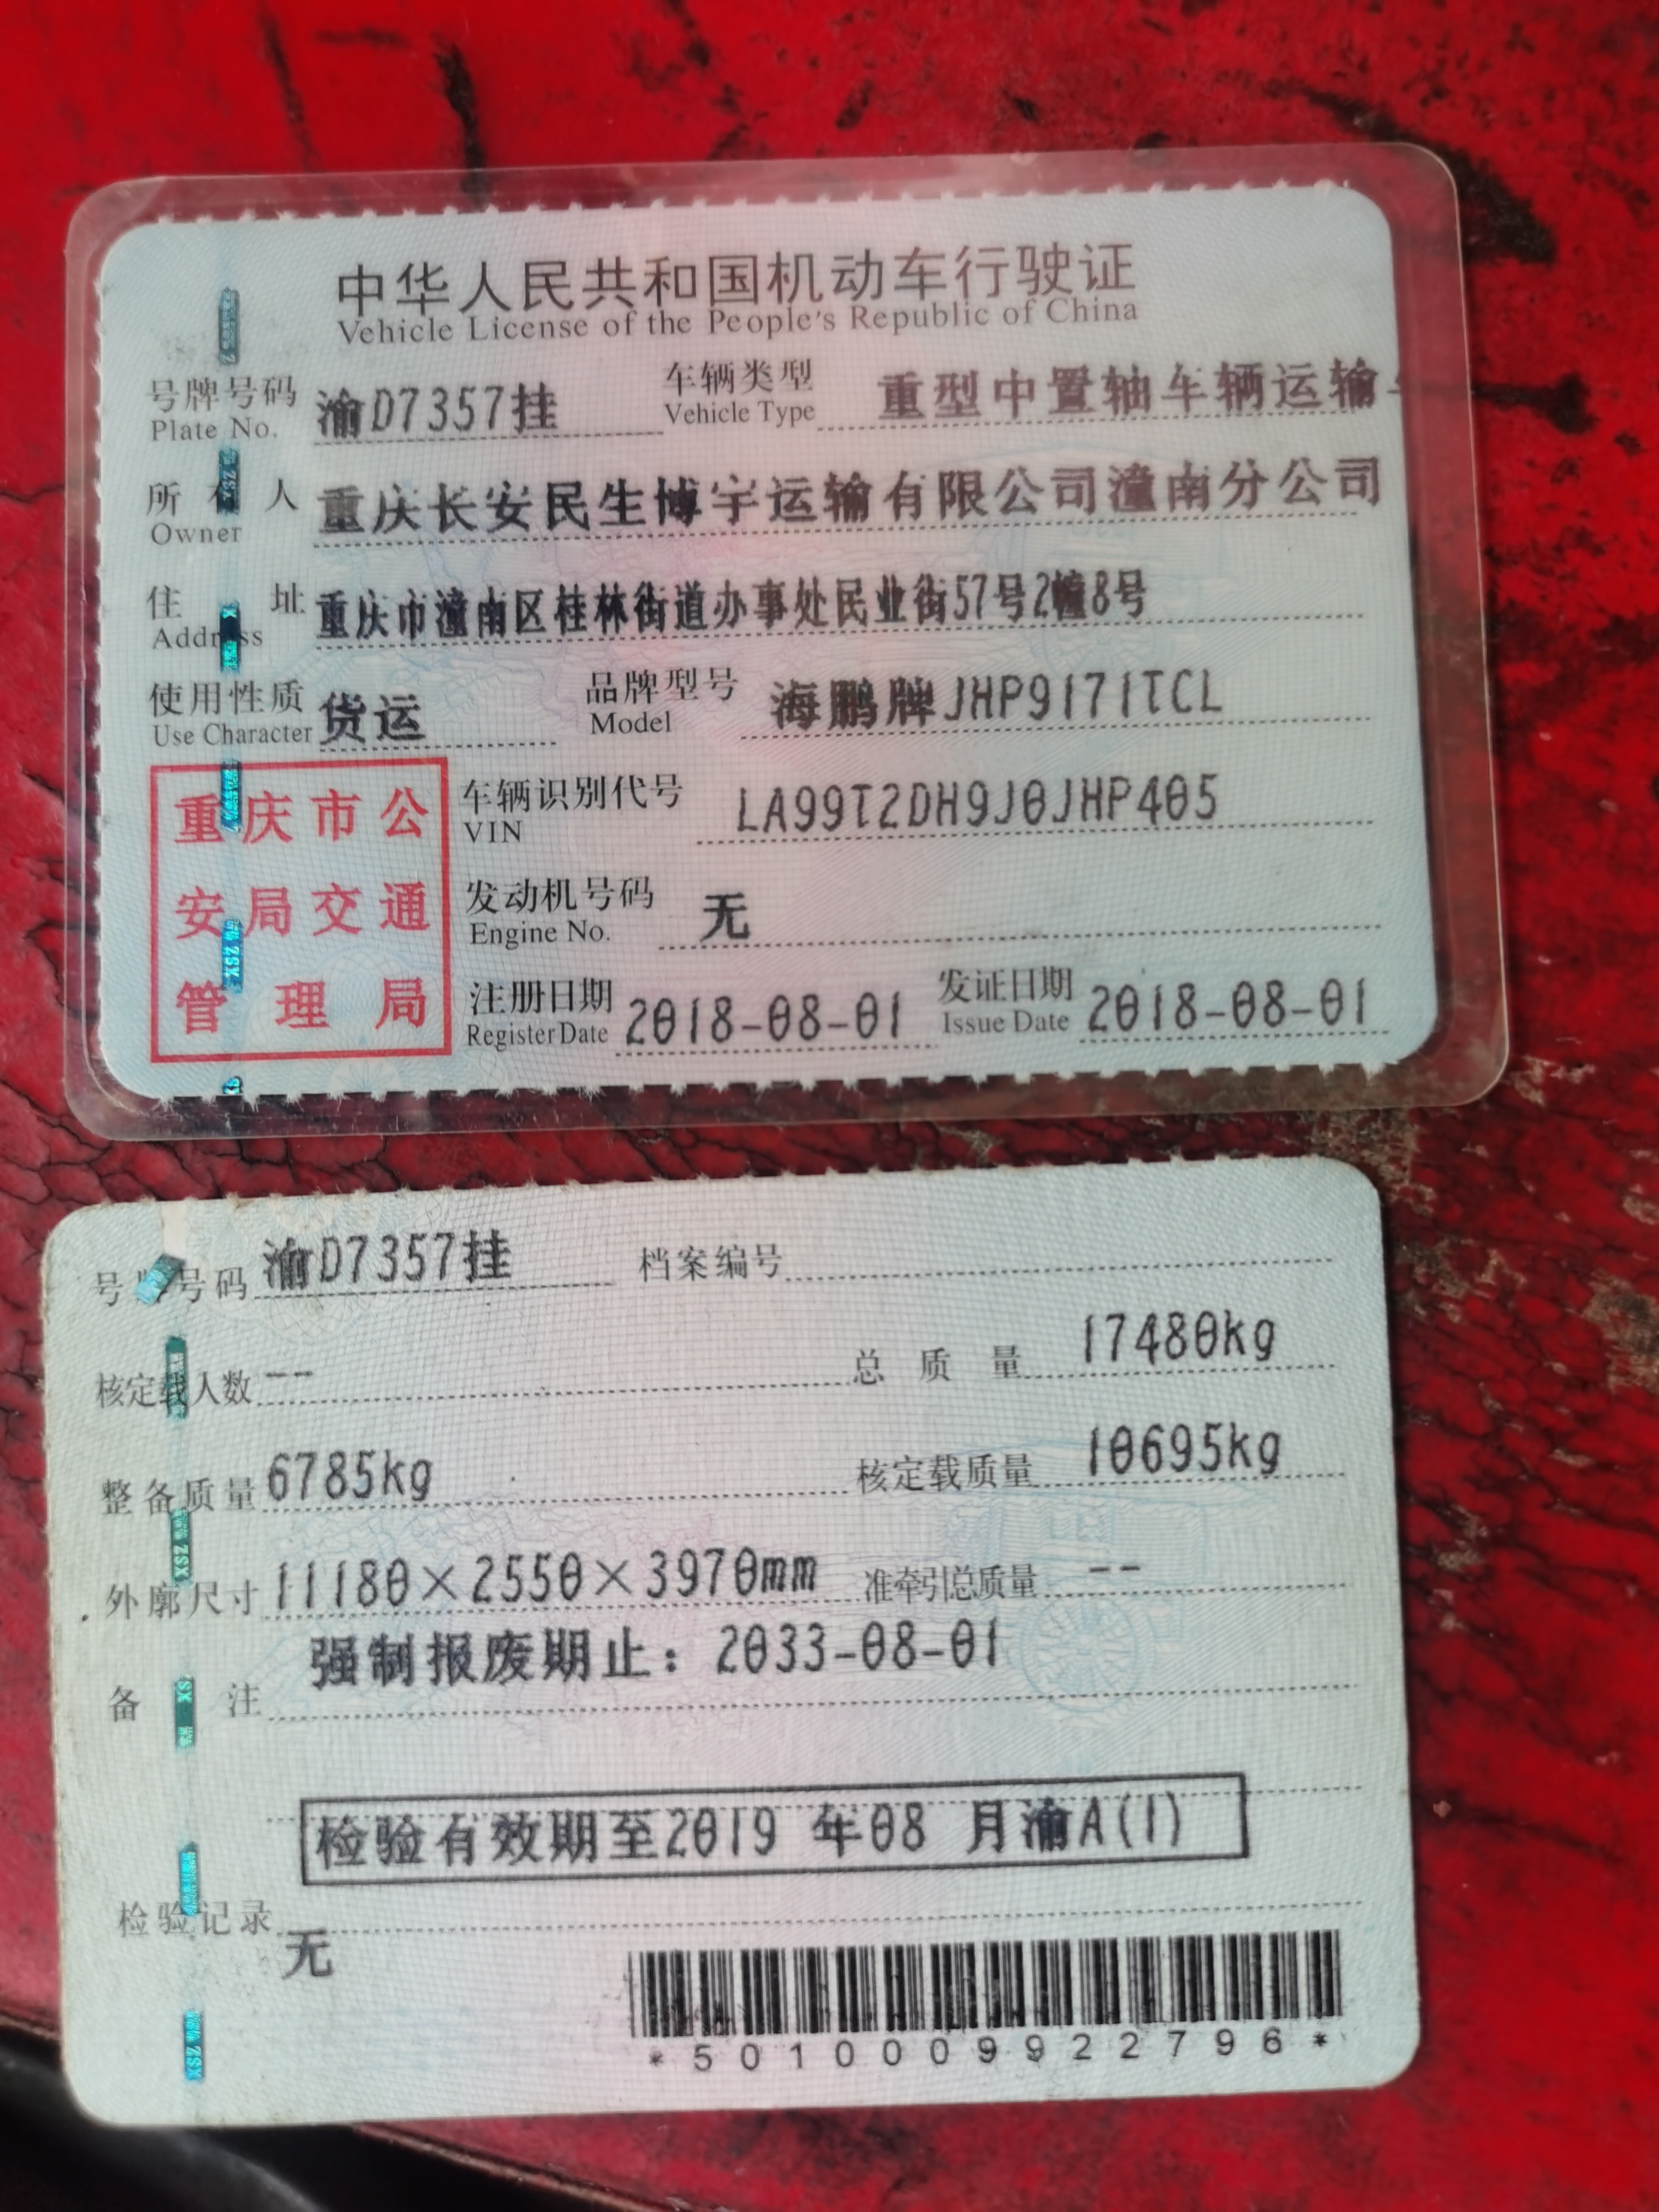 中华人民共和国机动车行驶证
Vehicle License of the People's Republic of China
号牌号码 渝D7357挂 车辆类型 重型中置轴车辆运输
Plate No. Vehicle Type
所有人 重庆长安民生博宇运输有限公司潼南分公司
Owner
住址 重庆市潼南区桂林街道办事处民业街57号2幢8号
Address
使用性质 货运 品牌型号 海鹏牌JHP9171TCL
Use Character Model
重庆市公
安局交通
管理局
车辆识别代号 LA99T2DH9J0JHP405
VIN
发动机号码 无
Engine No.
注册日期 2018-08-01 发证日期 2018-08-01
Register Date Issue Date
号牌号码 渝D7357挂 档案编号
核定载人数 -- 总质量 17480kg
整备质量 6785kg 核定载质量 10695kg
外廓尺寸 11180×2550×3970mm 准牵引总质量 --
备注 强制报废期止：2033-08-01
检验有效期至2019 年08 月渝A(1)
检验记录
无
*5010009922796*